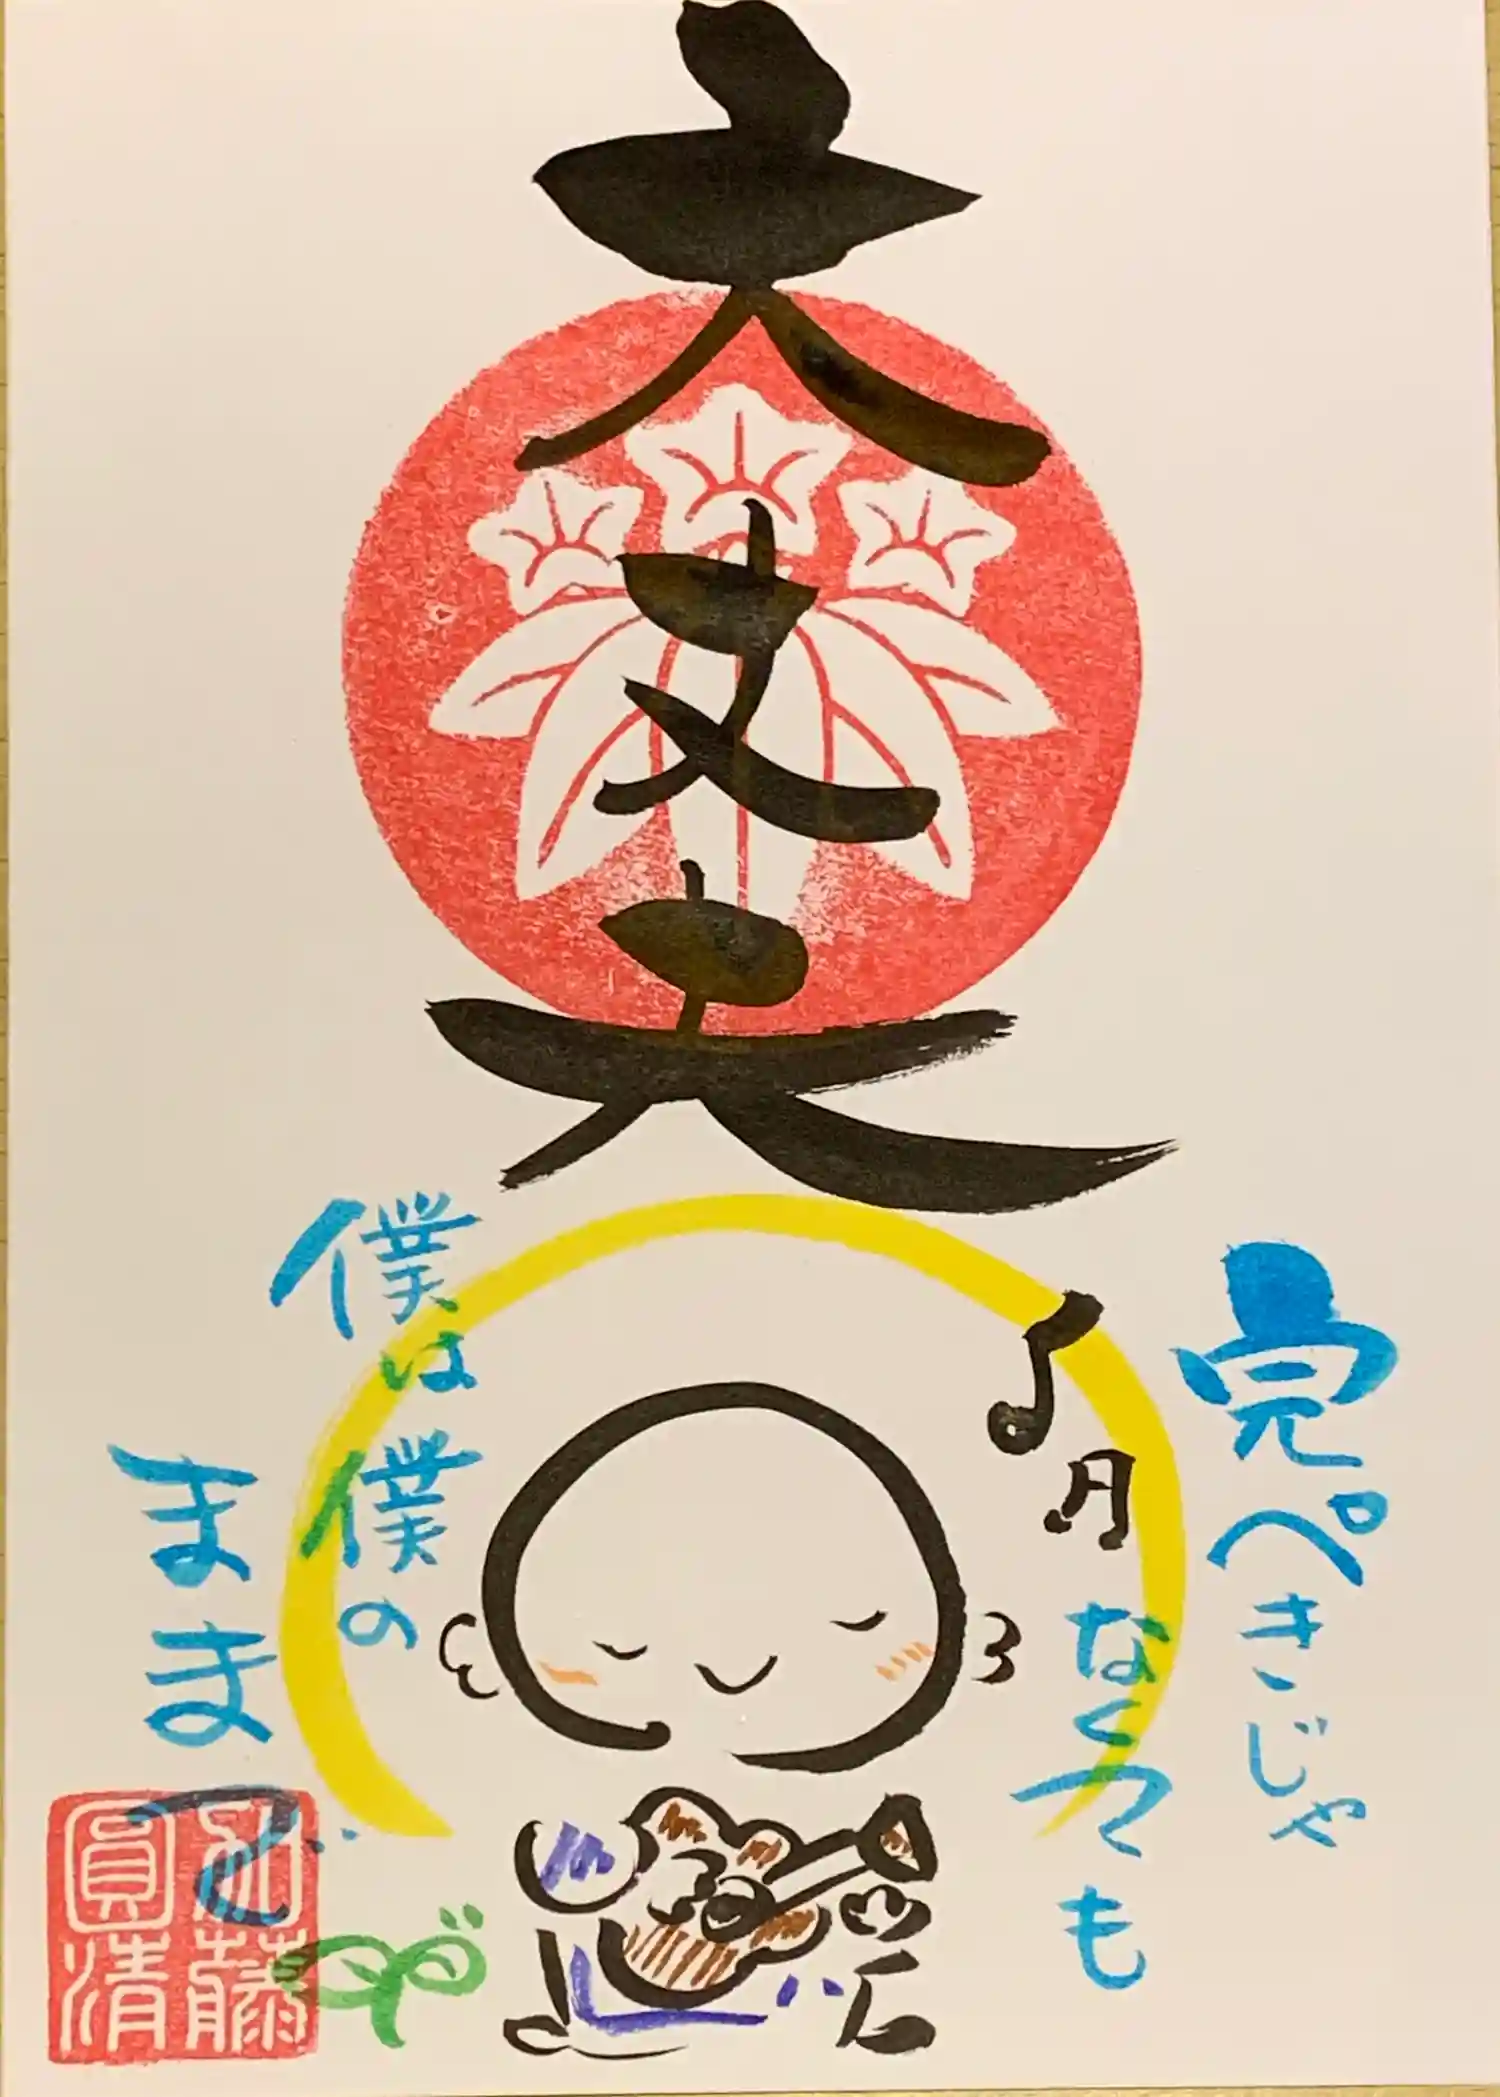 大丈夫
完ぺきじゃ
なくても
僕は僕の
ままで
藤
圓清